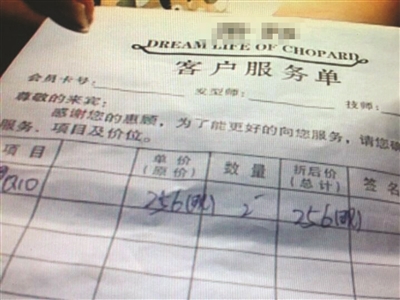 DREAM LIFE OF CHOPARD
客户服务单
会员卡号: 发型师: 技师:
尊敬的来宾:
感谢您的惠顾,为了能更好的向您服务,请您确
服务、项目及价位。
项目 单价(原价) 数量 折后价(总计) 签名
256 2 256